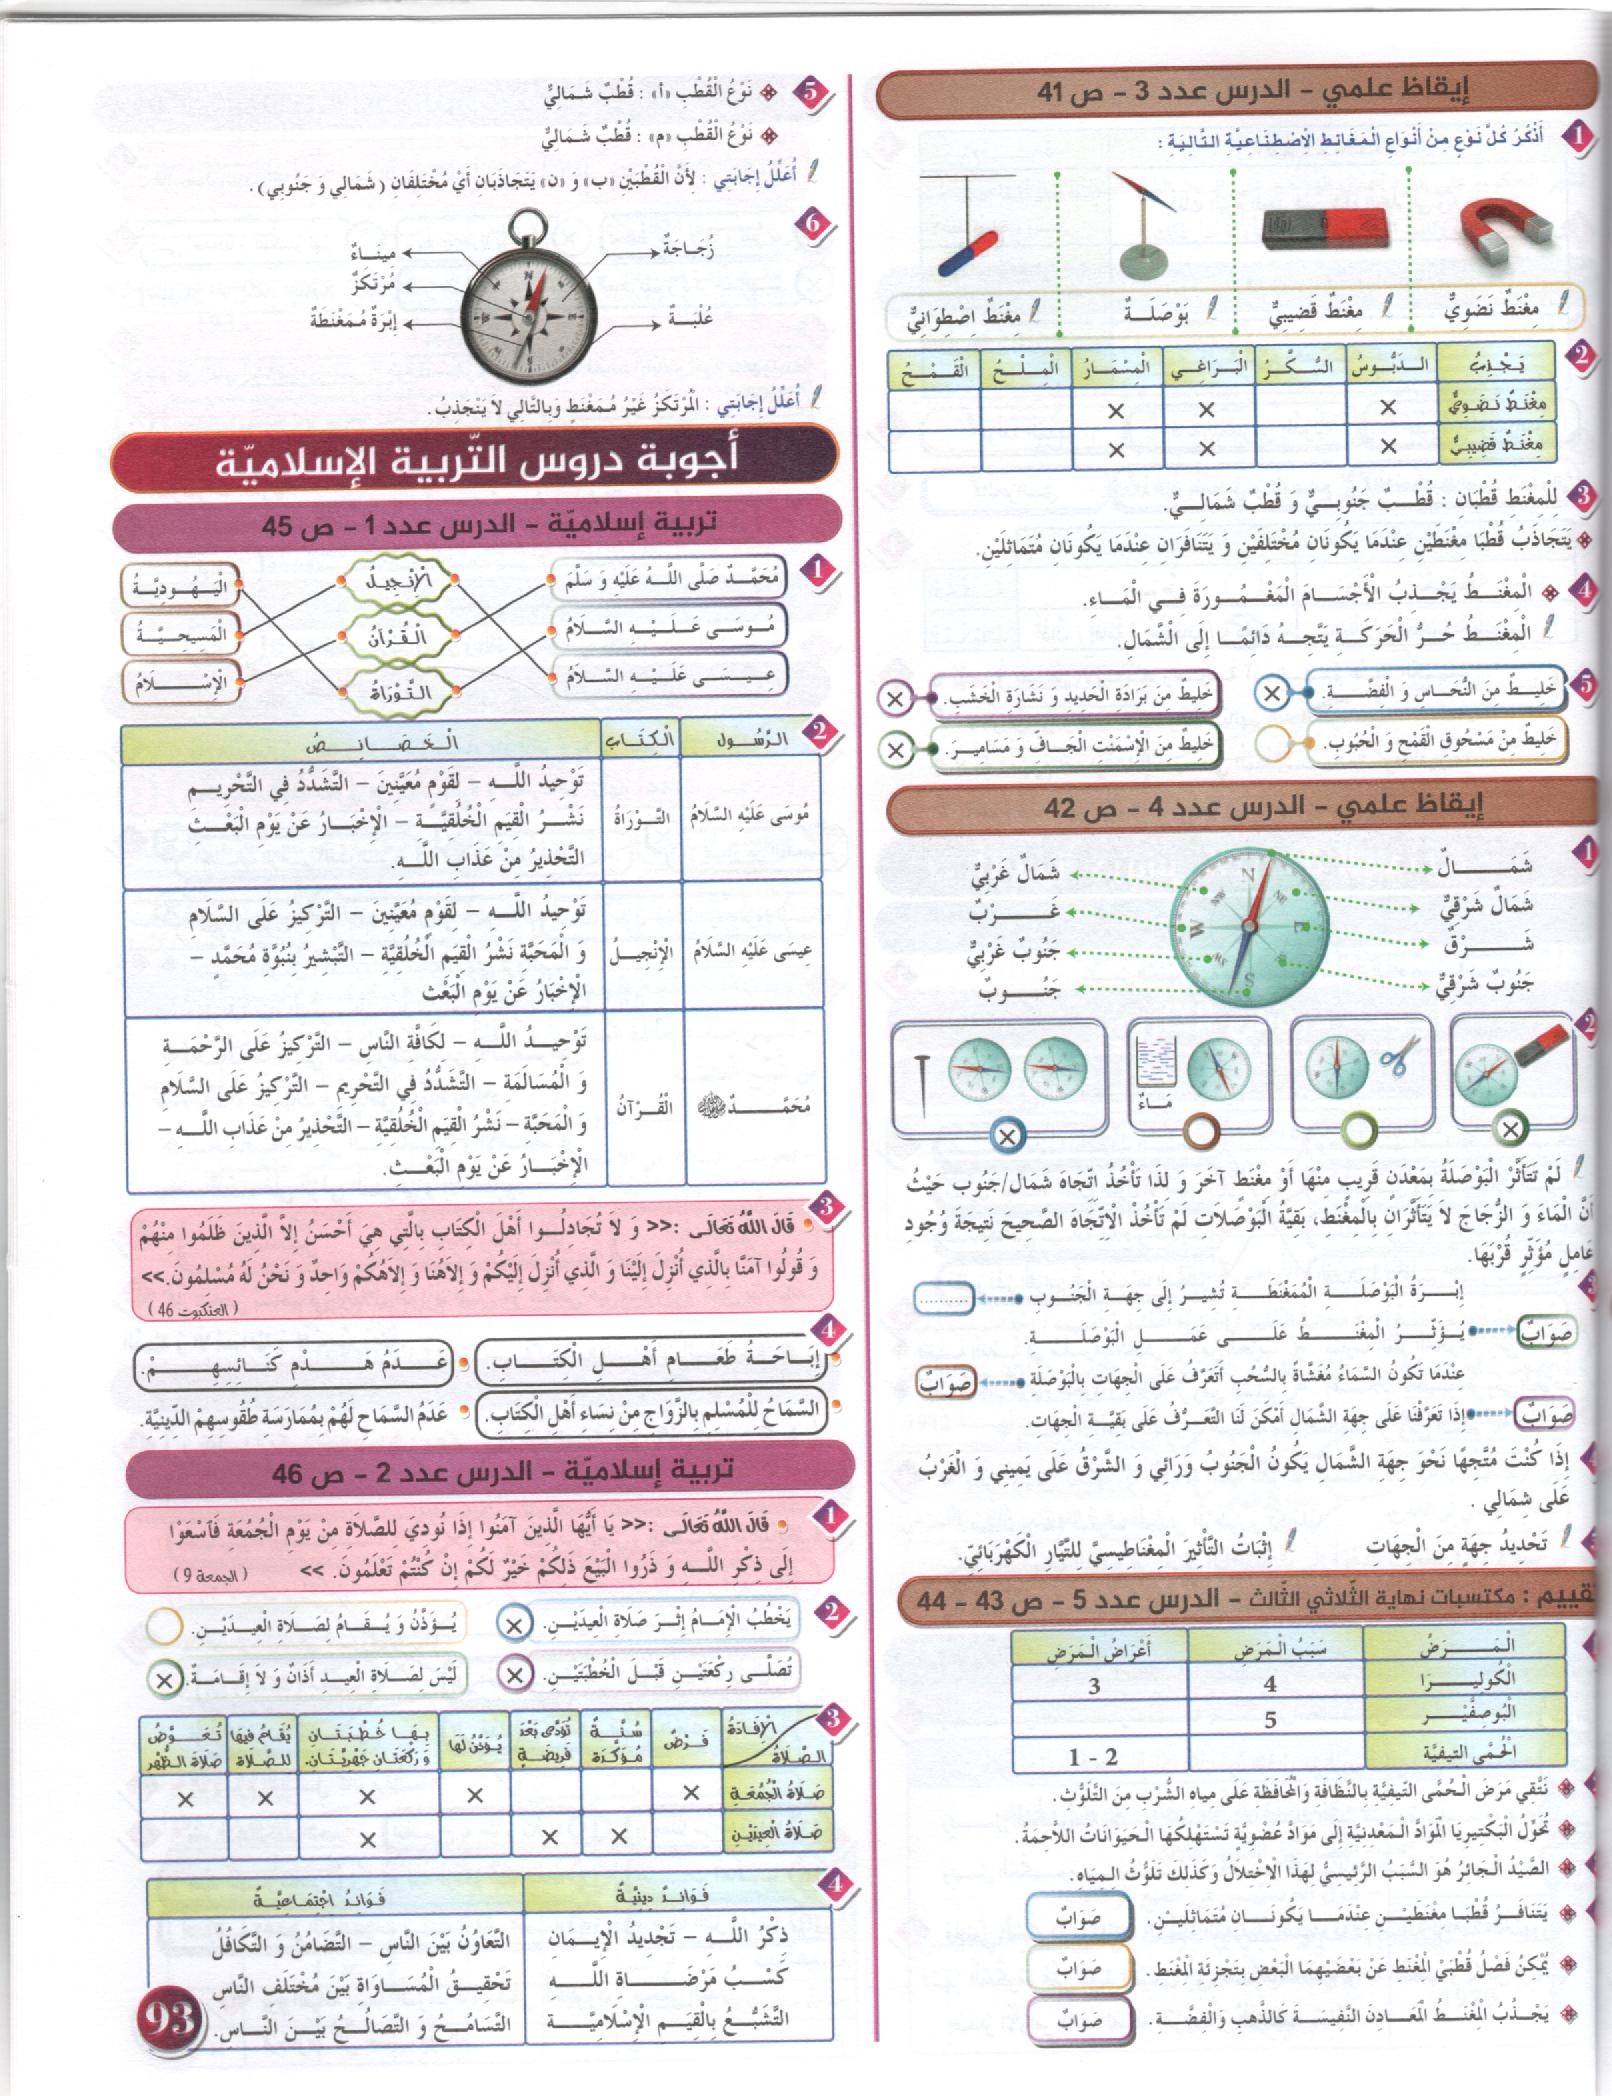 إيقاظ علمي - الدرس عدد 3 - ص 41
1 أَذْكُرُ كُلَّ نَوْعٍ مِنْ أَنْوَاعِ الْمَغَانِطِ الاِصْطِنَاعِيَّةِ التَّالِيَةِ :
مِغْنَطٌ نَضَوِيٌّ
مِغْنَطٌ قَضِيبِيٌّ
بَوْصَلَةٌ
مِغْنَطٌ اِصْطِوَانِيٌّ
2
يَجْذِبُ الدَّبُّوسُ السُّكَّرُ الْبَرَاغِي الْمِسْمَارُ الْمِلْحُ الْقَمْحُ
مِغْنَطٌ نَضَوِيٌّ × × ×
مِغْنَطٌ قَضِيبِيٌّ × × ×
3 لِلْمِغْنَطِ قُطْبَانِ : قُطْبٌ جَنُوبِيٌّ وَ قُطْبٌ شَمَالِيٌّ.
يَتَجَاذَبُ قُطْبَا مِغْنَطَيْنِ عِنْدَمَا يَكُونَانِ مُخْتَلِفَيْنِ وَ يَتَنَافَرَانِ عِنْدَمَا يَكُونَانِ مُتَمَاثِلَيْنِ.
4 الْمِغْنَطُ يَجْذِبُ الأَجْسَامَ الْمَغْمُورَةَ فِي الْمَاءِ.
الْمِغْنَطُ حُرُّ الْحَرَكَةِ يَتَّجِهُ دَائِمًا إِلَى الشَّمَالِ.
5 خَلِيطٌ مِنَ النُّحَاسِ وَ الْفِضَّةِ. ×
خَلِيطٌ مِنَ بَرَادَةِ الْحَدِيدِ وَ نَشَارَةِ الْخَشَبِ. ×
خَلِيطٌ مِنْ مَسْحُوقِ الْقَمْحِ وَ الْحُبُوبِ.
خَلِيطٌ مِنَ الإِسْمَنْتِ الْجَافِّ وَ مَسَامِيرَ. ×
إيقاظ علمي - الدرس عدد 4 - ص 42
1
شَمَالٌ
شَمَالٌ شَرْقِيٌّ
شَرْقٌ
جَنُوبٌ شَرْقِيٌّ
شَمَالٌ غَرْبِيٌّ
غَرْبٌ
جَنُوبٌ غَرْبِيٌّ
جَنُوبٌ
N
NE
E
S
W
2
مَاءٌ
×
×
لَمْ تَتَأَثَّرْ الْبَوْصَلَةُ بِمَعْدَنٍ قَرِيبٍ مِنْهَا أَوْ مِغْنَطٍ آخَرَ وَ لَذَا تَأْخُذُ اتِّجَاهَ شَمَال/جَنُوب حَيْثُ
أَنَّ الْمَاءَ وَ الزُّجَاجَ لاَ يَتَأَثَّرَانِ بِالْمِغْنَطِ، بَقِيَّةُ الْبَوْصَلاَتِ لَمْ تَأْخُذْ الاِتِّجَاهَ الصَّحِيحَ نَتِيجَةَ وُجُودِ
عَامِلٍ مُؤَثِّرٍ قُرْبَهَا.
3 إِبْرَةُ الْبَوْصَلَةِ الْمُمَغْنَطَةِ تُشِيرُ إِلَى جِهَةِ الْجَنُوبِ ..........
يُؤَثِّرُ الْمِغْنَطُ عَلَى عَمَلِ الْبَوْصَلَةِ. صَوَابٌ
عِنْدَمَا تَكُونُ السَّمَاءُ مُغَشَّاةً بِالسُّحُبِ أَتَعَرَّفُ عَلَى الْجِهَاتِ بِالْبَوْصَلَةِ صَوَابٌ
إِذَا تَعَرَّفْنَا عَلَى جِهَةِ الشَّمَالِ أَمْكَنَ لَنَا التَّعَرُّفُ عَلَى بَقِيَّةِ الْجِهَاتِ. صَوَابٌ
4 إِذَا كُنْتَ مُتَّجِهًا نَحْوَ جِهَةِ الشَّمَالِ يَكُونُ الْجَنُوبُ وَرَائِي وَ الشَّرْقُ عَلَى يَمِينِي وَ الْغَرْبُ
عَلَى شِمَالِي .
تَحْدِيدُ جِهَةٍ مِنَ الْجِهَاتِ
إِثْبَاتُ التَّأْثِيرِ الْمِغْنَاطِيسِيِّ لِلتَّيَّارِ الْكَهْرَبَائِيِّ.
تقييم : مكتسبات نهاية الثّلاثي الثّالث - الدرس عدد 5 - ص 43 - 44
الْمَرَضُ سَبَبُ الْمَرَضِ أَعْرَاضُ الْمَرَضِ
الْكُولِيرَا 4 3
الْبُوصُفَّيْر 5
الْحُمَّى التِيفِيَّة 1 - 2
نَتَّقِي مَرَضَ الْحُمَّى التِيفِيَّةِ بِالنَّظَافَةِ وَالْمُحَافَظَةِ عَلَى مِيَاهِ الشُّرْبِ مِنَ التَّلَوُّثِ.
تُحَوِّلُ الْبَكْتِيرِيَا الْمَوَادَّ الْمَعْدِنِيَّةَ إِلَى مَوَادَّ عُضْوِيَّةٍ تَسْتَهْلِكُهَا الْحَيَوَانَاتُ اللاَّحِمَةُ.
الصَّيْدُ الْجَائِرُ هُوَ السَّبَبُ الرَّئِيسِيُّ لِهَذَا الاِخْتِلاَلِ وَكَذَلِكَ تَلَوُّثُ الْمِيَاهِ.
يَتَنَافَرُ قُطْبَا مِغْنَطَيْنِ عِنْدَمَا يَكُونَانِ مُتَمَاثِلَيْنِ. صَوَابٌ
يُمْكِنُ فَصْلُ قُطْبَيْ الْمِغْنَطِ عَنْ بَعْضَيْهِمَا الْبَعْضِ بِتَجْزِئَةِ الْمِغْنَطِ. صَوَابٌ
يَجْذِبُ الْمِغْنَطُ الْمَعَادِنَ النَّفِيسَةَ كَالذَّهَبِ وَالْفِضَّةِ. صَوَابٌ
5 نَوْعُ الْقُطْبِ «أ» : قُطْبٌ شَمَالِيٌّ
نَوْعُ الْقُطْبِ «م» : قُطْبٌ شَمَالِيٌّ
أُعَلِّلُ إِجَابَتِي : لِأَنَّ الْقُطْبَيْنِ «ب» وَ «ن» يَتَجَاذَبَانِ أَيْ مُخْتَلِفَانِ (شَمَالِي وَ جَنُوبِي).
6
زُجَاجَةٌ
عُلْبَةٌ
مِينَاءٌ
مُرْتَكَزٌ
إِبْرَةٌ مُمَغْنَطَةٌ
أُعَلِّلُ إِجَابَتِي : الْمُرْتَكَزُ غَيْرُ مُمَغْنَطٍ وَبِالتَّالِي لاَ يَنْجَذِبُ.
أجوبة دروس التّربية الإسلاميّة
تربية إسلاميّة - الدرس عدد 1 - ص 45
1
مُحَمَّدٌ صَلَّى اللَّهُ عَلَيْهِ وَ سَلَّمَ الإِنْجِيلُ الْيَهُودِيَّةُ
مُوسَى عَلَيْهِ السَّلاَمُ الْقُرْآنُ الْمَسِيحِيَّةُ
عِيسَى عَلَيْهِ السَّلاَمُ التَّوْرَاةُ الإِسْلاَمُ
2
الرَّسُولُ الْكِتَابُ الْخَصَائِصُ
مُوسَى عَلَيْهِ السَّلاَمُ التَّوْرَاةُ
تَوْحِيدُ اللَّهِ - لِقَوْمٍ مُعَيَّنِينَ - التَّشَدُّدُ فِي التَّحْرِيمِ
نَشْرُ الْقِيَمِ الْخُلُقِيَّةِ - الإِخْبَارُ عَنْ يَوْمِ الْبَعْثِ
التَّحْذِيرُ مِنْ عَذَابِ اللَّهِ.
عِيسَى عَلَيْهِ السَّلاَمُ الإِنْجِيلُ
تَوْحِيدُ اللَّهِ - لِقَوْمٍ مُعَيَّنِينَ - التَّرْكِيزُ عَلَى السَّلاَمِ
وَ الْمَحَبَّةِ نَشْرُ الْقِيَمِ الْخُلُقِيَّةِ - التَّبْشِيرُ بِنُبُوَّةِ مُحَمَّدٍ -
الإِخْبَارُ عَنْ يَوْمِ الْبَعْثِ
مُحَمَّدٌ ﷺ الْقُرْآنُ
تَوْحِيدُ اللَّهِ - لِكَافَّةِ النَّاسِ - التَّرْكِيزُ عَلَى الرَّحْمَةِ
وَ الْمُسَالَمَةِ - التَّشَدُّدُ فِي التَّحْرِيمِ - التَّرْكِيزُ عَلَى السَّلاَمِ
وَ الْمَحَبَّةِ - نَشْرُ الْقِيَمِ الْخُلُقِيَّةِ - التَّحْذِيرُ مِنْ عَذَابِ اللَّهِ -
الإِخْبَارُ عَنْ يَوْمِ الْبَعْثِ.
3 قَالَ اللَّهُ تَعَالَى :<< وَ لاَ تُجَادِلُوا أَهْلَ الْكِتَابِ بِالَّتِي هِيَ أَحْسَنُ إِلاَّ الَّذِينَ ظَلَمُوا مِنْهُمْ
وَ قُولُوا آمَنَّا بِالَّذِي أُنْزِلَ إِلَيْنَا وَ الَّذِي أُنْزِلَ إِلَيْكُمْ وَ إِلاَهُنَا وَ إِلاَهُكُمْ وَاحِدٌ وَ نَحْنُ لَهُ مُسْلِمُونَ.>>
(العنكبوت 46)
4 إِبَاحَةُ طَعَامِ أَهْلِ الْكِتَابِ. عَدَمُ هَدْمِ كَنَائِسِهِمْ.
السَّمَاحُ لِلْمُسْلِمِ بِالزَّوَاجِ مِنْ نِسَاءِ أَهْلِ الْكِتَابِ. عَدَمُ السَّمَاحِ لَهُمْ بِمُمَارَسَةِ طُقُوسِهِمْ الدِّينِيَّةِ.
تربية إسلاميّة - الدرس عدد 2 - ص 46
1 قَالَ اللَّهُ تَعَالَى :<< يَا أَيُّهَا الَّذِينَ آمَنُوا إِذَا نُودِيَ لِلصَّلاَةِ مِنْ يَوْمِ الْجُمُعَةِ فَاسْعَوْا
إِلَى ذِكْرِ اللَّهِ وَ ذَرُوا الْبَيْعَ ذَلِكُمْ خَيْرٌ لَكُمْ إِنْ كُنْتُمْ تَعْلَمُونَ. >> (الجمعة 9)
2 يَخْطُبُ الإِمَامُ إِثْرَ صَلاَةِ الْعِيدَيْنِ. × يُؤَذَّنُ وَ يُقَامُ لِصَلاَةِ الْعِيدَيْنِ.
تُصَلَّى رَكْعَتَيْنِ قَبْلَ الْخُطْبَتَيْنِ. × لَيْسَ لِصَلاَةِ الْعِيدِ أَذَانٌ وَ لاَ إِقَامَةٌ. ×
3
الإِفَادَةُ الصَّلاَةُ فَرْضٌ سُنَّةٌ مُؤَكَّدَةٌ تُؤَدَّى بَعْدَ فَرِيضَةٍ يُؤَذَّنُ لَهَا بِهَا خُطْبَتَانِ وَ رَكْعَتَانِ جَهْرِيَّتَانِ. يُقَامُ فِيهَا لِلصَّلاَةِ تُعَوِّضُ صَلاَةَ الظُّهْرِ
صَلاَةُ الْجُمُعَةِ × × × × ×
صَلاَةُ الْعِيدَيْنِ × × ×
4
فَوَائِدُ دِينِيَّةٌ فَوَائِدُ اجْتِمَاعِيَّةٌ
ذِكْرُ اللَّهِ - تَجْدِيدُ الإِيمَانِ التَّعَاوُنُ بَيْنَ النَّاسِ - التَّضَامُنُ وَ التَّكَافُلُ
كَسْبُ مَرْضَاةِ اللَّهِ تَحْقِيقُ الْمُسَاوَاةِ بَيْنَ مُخْتَلَفِ النَّاسِ
التَّشَبُّعُ بِالْقِيَمِ الإِسْلاَمِيَّةِ التَّسَامُحُ وَ التَّصَالُحُ بَيْنَ النَّاسِ.
93